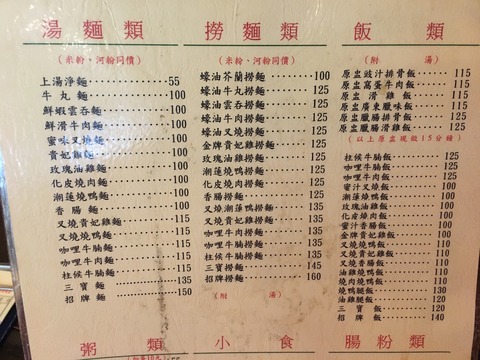 湯麵類
(米粉、河粉同價)
上湯淨麵⋯⋯⋯55
牛丸麵⋯⋯⋯100
鮮蝦雲吞麵⋯⋯⋯100
鮮滑牛肉麵⋯⋯⋯100
蜜味叉燒麵⋯⋯⋯100
貴妃雞麵⋯⋯⋯100
玫瑰油雞麵⋯⋯⋯100
化皮燒肉麵⋯⋯⋯100
潮蓮燒鴨麵⋯⋯⋯100
香腸麵⋯⋯⋯100
叉燒貴妃雞麵⋯⋯⋯115
叉燒燒鴨麵⋯⋯⋯115
咖哩牛腩麵⋯⋯⋯115
咖哩牛肉麵⋯⋯⋯115
柱侯牛腩麵⋯⋯⋯115
三寶麵⋯⋯⋯135
招牌麵⋯⋯⋯150
粥類
撈麵類
(米粉、河粉同價)
蠔油芥蘭撈麵⋯⋯⋯100
蠔油牛丸撈麵⋯⋯⋯125
蠔油雲吞撈麵⋯⋯⋯125
蠔油牛肉撈麵⋯⋯⋯125
蠔油叉燒撈麵⋯⋯⋯125
金牌貴妃雞撈麵⋯⋯⋯125
玫瑰油雞撈麵⋯⋯⋯125
化皮燒肉撈麵⋯⋯⋯125
潮蓮燒鴨撈麵⋯⋯⋯125
香腸撈麵⋯⋯⋯125
叉燒潮蓮鴨撈麵⋯⋯⋯130
叉燒貴妃雞撈麵⋯⋯⋯130
咖哩牛肉撈麵⋯⋯⋯130
咖哩牛腩撈麵⋯⋯⋯130
柱侯牛腩撈麵⋯⋯⋯130
三寶撈麵⋯⋯⋯150
招牌撈麵⋯⋯⋯160
(附湯)
小食
飯類
(附湯)
原盅豉汁排骨飯⋯⋯⋯115
原盅窩蛋牛肉飯⋯⋯⋯115
原盅滑雞飯⋯⋯⋯115
原盅廣東臘味飯⋯⋯⋯115
原盅臘腸排骨飯⋯⋯⋯115
原盅臘腸滑雞飯⋯⋯⋯115
(以上原盅現做15分鐘)
柱侯牛腩飯⋯⋯⋯125
咖哩牛腩飯⋯⋯⋯125
咖哩牛肉飯⋯⋯⋯125
蜜汁叉燒飯⋯⋯⋯100
潮蓮燒鴨飯⋯⋯⋯100
玫瑰油雞飯⋯⋯⋯100
化皮燒肉飯⋯⋯⋯100
蜜汁香腸飯⋯⋯⋯100
金牌貴妃雞飯⋯⋯⋯100
叉燒燒鴨飯⋯⋯⋯110
叉燒油雞飯⋯⋯⋯110
叉燒貴妃雞飯⋯⋯⋯110
叉燒香腸飯⋯⋯⋯110
油雞燒鴨飯⋯⋯⋯110
燒肉燒鴨飯⋯⋯⋯110
燒鴨腿飯⋯⋯⋯130
油雞腿飯⋯⋯⋯120
三寶飯⋯⋯⋯120
招牌飯⋯⋯⋯140
腸粉類